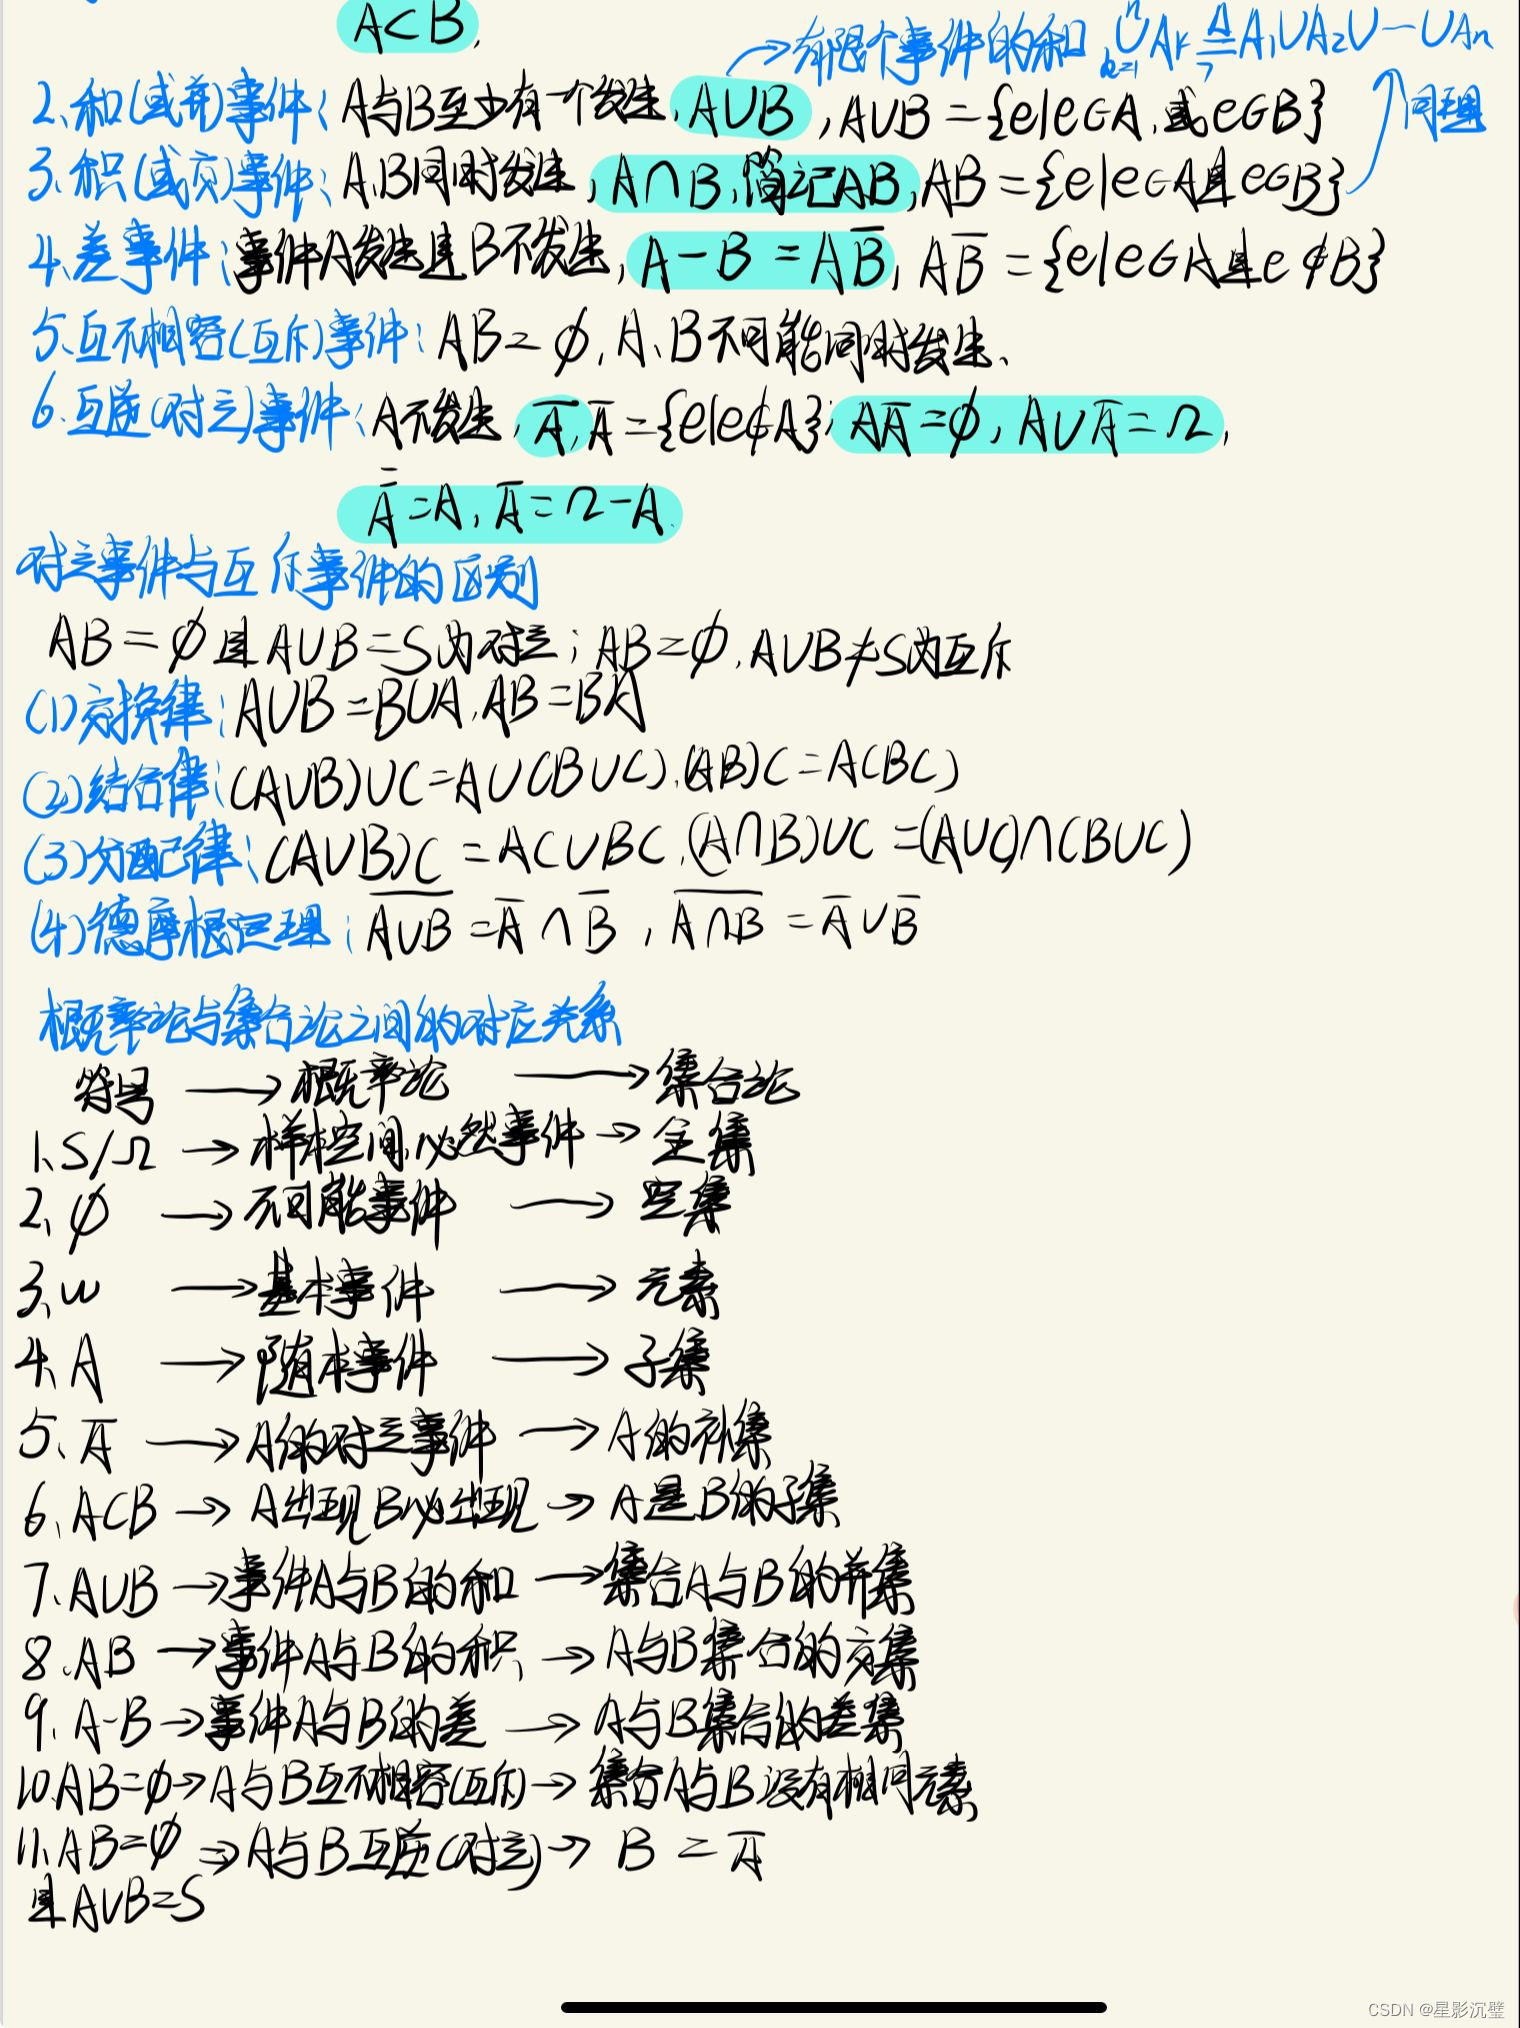 A⊂B.
→有限个事件的和 ⋃ₖ₌₁ⁿ Aₖ ≜ A₁∪A₂∪…∪Aₙ
2、和(或并)事件:A与B至少有一个发生,A∪B,A∪B={e|e∈A,或e∈B} 同理
3、积(或交)事件:A、B同时发生,A∩B,简记AB,AB={e|e∈A且e∈B}
4、差事件:事件A发生且B不发生,A-B=AB̅,AB̅={e|e∈A且e∉B}
5、互不相容(互斥)事件:AB=∅,A、B不可能同时发生、
6、互逆(对立)事件:A不发生,A̅,A̅={e|e∉A};AA̅=∅,A∪A̅=Ω,
A̿=A,A̅=Ω-A.
对立事件与互斥事件的区别
AB=∅且A∪B=S为对立;AB=∅,A∪B≠S为互斥
(1)交换律:A∪B=B∪A,AB=BA
(2)结合律:(A∪B)∪C=A∪(B∪C),(AB)C=A(BC)
(3)分配律:(A∪B)C=AC∪BC,(A∩B)∪C=(A∪C)∩(B∪C)
(4)德摩根定理:A̅∪̅B̅=A̅∩B̅,A̅∩̅B̅=A̅∪B̅
概率论与集合论之间的对应关系
符号→概率论→集合论
1、S/Ω→样本空间,必然事件→全集
2、∅→不可能事件→空集
3、ω→基本事件→元素
4、A→随本事件→子集
5、A̅→A的对立事件→A的补集
6、A⊂B→A出现B必出现→A是B的子集
7、A∪B→事件A与B的和→集合A与B的并集
8、AB→事件A与B的积→A与B集合的交集
9、A-B→事件A与B的差→A与B集合的差集
10、AB=∅→A与B互不相容(互斥)→集合A与B没有相同元素
11、AB=∅→A与B互逆(对立)→B=A̅
且A∪B=S
CSDN @星影沉璧